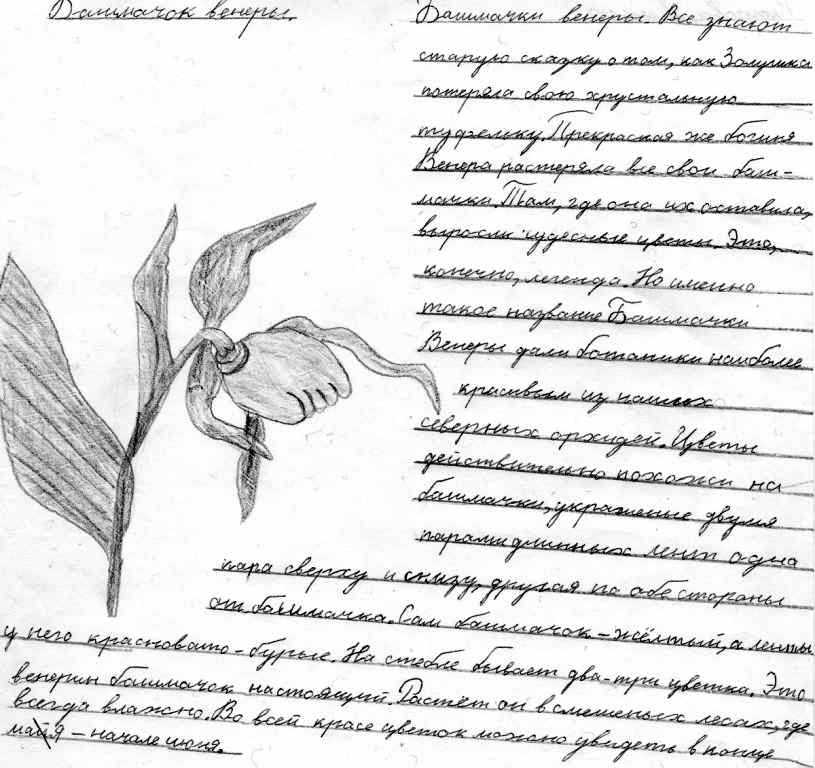 Башмачок венеры.
Башмачки венеры. Все знают
старую сказку о том, как Золушка
потеряла свою хрустальную
туфельку. Прекрасная же богиня
Венера растеряла все свои баш-
мачки. Там, где она их оставила,
выросли чудесные цветы. Это,
конечно, легенда. Но именно
такое название Башмачки
Венеры дали ботаники наиболее
красивым из наших
северных орхидей. Цветы
действительно похожи на
башмачки, украшеные двумя
парами длинных лент одна
пара сверху и снизу, другая по обе стороны
от башмачка. Сам башмачок - жёлтый, а ленты
у него красновато-бурые. На стебле бывает два-три цветка. Это
венерин башмачок настоящий. Растёт он в смешеных лесах, где
всегда влажно. Во всей красе цветок можно увидеть в конце
мая - начале июня.